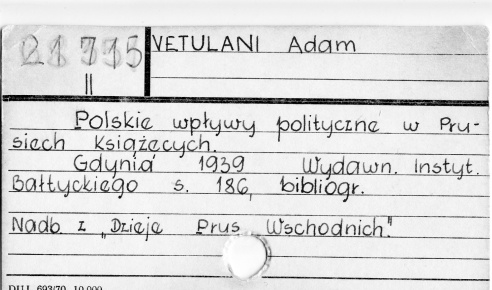 21715 VETULANI Adam
II
Polskie wpływy polityczne w Pru-
siech Książęcych.
Gdynia 1939 Wydawn. Instyt.
Bałtyckiego s. 186, bibliogr.
Nadb. z „Dzieje Prus Wschodnich"
DUJ. 693/70 10.000